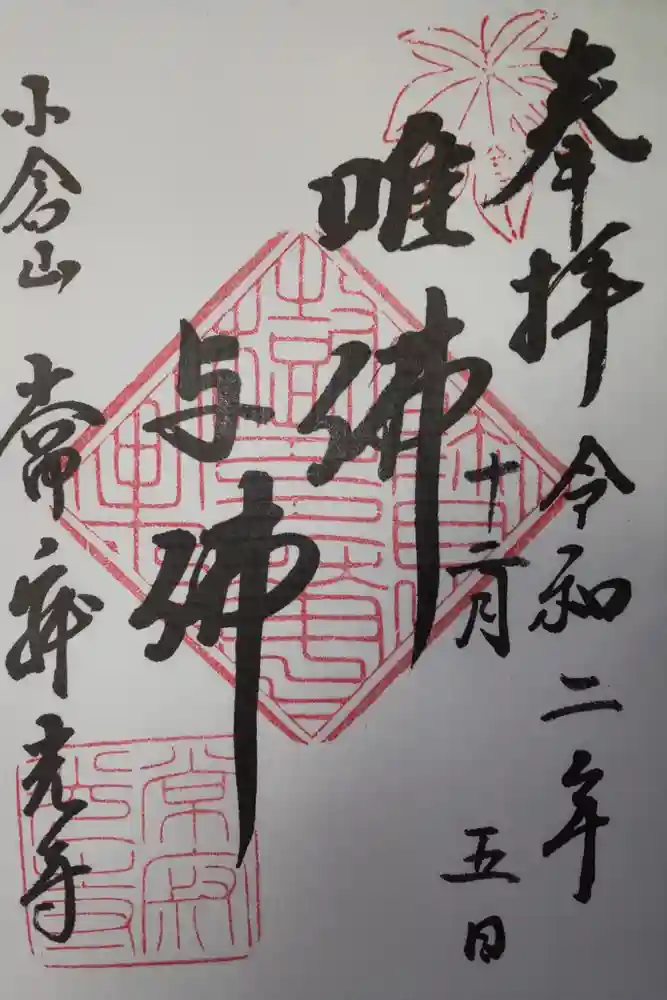 奉拝 令和二年
十二月 五日
唯佛
与佛
小倉山 常寂光寺
常寂
光寺